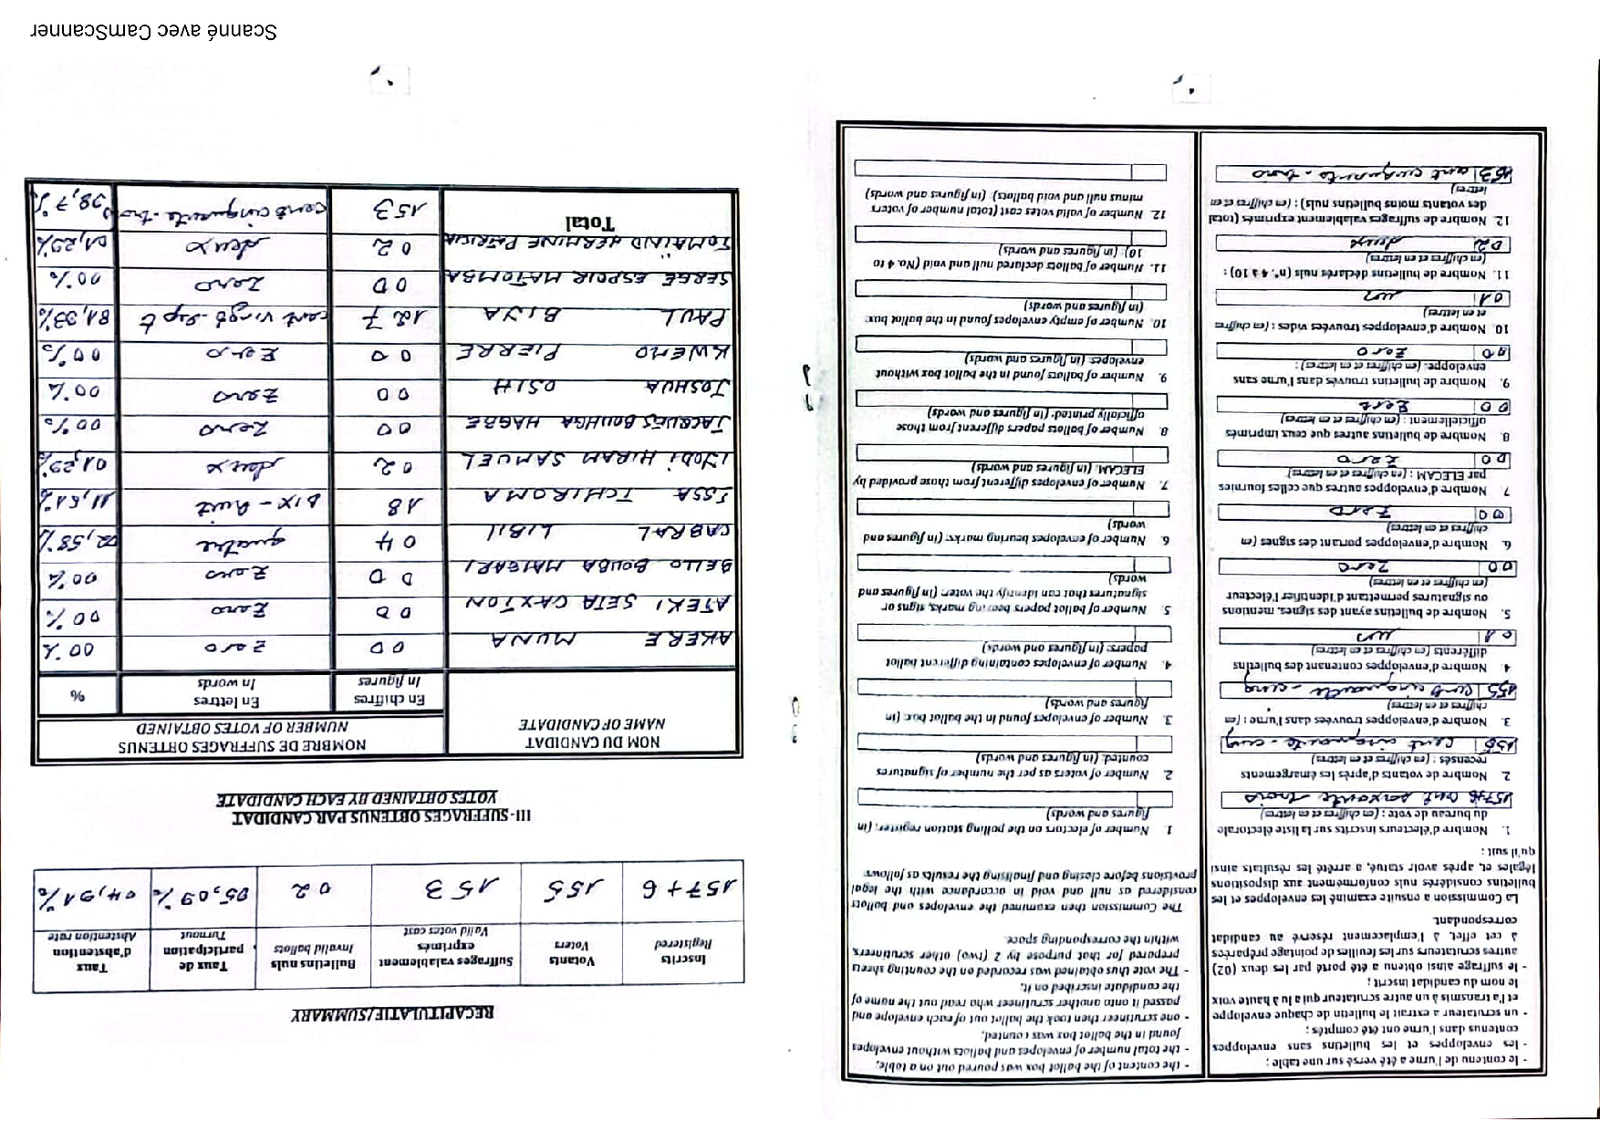 - le contenu de l'urne a été versé sur une table ;
- les enveloppes et les bulletins sans enveloppes
contenus dans l'urne ont été comptés ;
- un scrutateur a extrait le bulletin de chaque enveloppe
et l'a transmis à un autre scrutateur qui a lu à haute voix
le nom du candidat inscrit ;
- le suffrage ainsi obtenu a été porté par les deux (02)
autres scrutateurs sur les feuilles de pointage préparées
à cet effet, à l'emplacement réservé au candidat
correspondant.
La Commission a ensuite examiné les enveloppes et les
bulletins considérés nuls conformément aux dispositions
légales et, après avoir statué, a arrêté les résultats ainsi
qu'il suit :
1. Nombre d'électeurs inscrits sur la liste électorale
du bureau de vote : (en chiffres et en lettres)
157+6 cent soixante trois
2. Nombre de votants d'après les émargements
recensés : (en chiffres et en lettres)
155 cent cinquante - cinq
3. Nombre d'enveloppes trouvées dans l'urne : (en
chiffres et en lettres)
155 cent cinquante - cinq
4. Nombre d'enveloppes contenant des bulletins
différents (en chiffres et en lettres)
01 un
5. Nombre de bulletins ayant des signes, mentions
ou signatures permettant d'identifier l'électeur
(en chiffres et en lettres)
00 Zero
6. Nombre d'enveloppes portant des signes (en
chiffres et en lettres)
00 Zero
7 Nombre d'enveloppes autres que celles fournies
par ELECAM : (en chiffres et en lettres)
00 Zero
8. Nombre de bulletins autres que ceux imprimés
officiellement : (en chiffres et en lettres)
00 Zero
9. Nombre de bulletins trouvés dans l'urne sans
enveloppe: (en chiffres et en lettres) :
00 Zero
10. Nombre d'enveloppes trouvées vides : (en chiffres
et en lettres)
01 un
11. Nombre de bulletins déclarés nuls (n°. 4 à 10) :
(en chiffres et en lettres)
02 deux
12. Nombre de suffrages valablement exprimés (total
des votants moins bulletins nuls) : (en chiffres et en
lettres)
153 cent cinquante - trois
- the content of the ballot box was poured out on a table,
- the total number of envelopes and ballots without envelopes
found in the ballot box was counted,
- one scrutineer then took the ballot out of each envelope and
passed it onto another scrutineer who read out the name of
the candidate inscribed on it,
- The vote thus obtained was recorded on the counting sheets
prepared for that purpose by 2 (two) other scrutineers,
within the corresponding space.
The Commission then examined the envelopes and ballots
considered as null and void in accordance with the legal
provisions before closing and finalising the results as follows:
1. Number of electors on the polling station register: (in
figures and words)
2. Number of voters as per the number of signatures
counted: (in figures and words)
3. Number of envelopes found in the ballot box: (in
figures and words)
4. Number of envelopes containing different ballot
papers: (in figures and words)
5. Number of ballot papers bearing marks, signs or
signatures that can identify the voter: (in figures and
words)
6. Number of envelopes bearing marks: (in figures and
words)
7. Number of envelopes different from those provided by
ELECAM: (in figures and words)
8. Number of ballots papers different from those
officially printed: (in figures and words)
9. Number of ballots found in the ballot box without
envelopes: (in figures and words)
10. Number of empty envelopes found in the ballot box:
(in figures and words)
11. Number of ballots declared null and void (No. 4 to
10): (in figures and words)
12. Number of valid votes cast (total number of voters
minus null and void ballots): (in figures and words)
RECAPITULATIF/SUMMARY
Inscrits Votants Suffrages valablement exprimés Bulletins nuls Taux de participation Taux d'abstention
Registered Voters Valid votes cast Invalid ballots Turnout Abstention rate
157+6 155 153 02 95,09% 04,91%
III- SUFFRAGES OBTENUS PAR CANDIDAT
VOTES OBTAINED BY EACH CANDIDATE
NOM DU CANDIDAT NOMBRE DE SUFFRAGES OBTENUS
NAME OF CANDIDATE NUMBER OF VOTES OBTAINED
En chiffres En lettres %
In figures In words
AKERE MUNA 00 Zero 00%
ATEKI SETA CAXTON 00 Zero 00%
BELLO BOUBA MAIGARI 00 Zero 00%
CABRAL LIBII 04 quatre 02,58%
ISSA TCHIROMA 18 Dix - huit 11,61%
IYODI HIRAM SAMUEL 02 deux 01,29%
JACQUES BOUHGA HAGBE 00 Zero 00%
JOSHUA OSIH 00 Zero 00%
KWEMO PIERRE 00 Zero 00%
PAUL BIYA 127 cent vingt-sept 81,93%
SERGE ESPOIR MATOMBA 00 Zero 00%
TOMAINO HERMINE PATRICIA 02 deux 01,29%
Total 153 cent cinquante-trois 98,7%
Scanné avec CamScanner